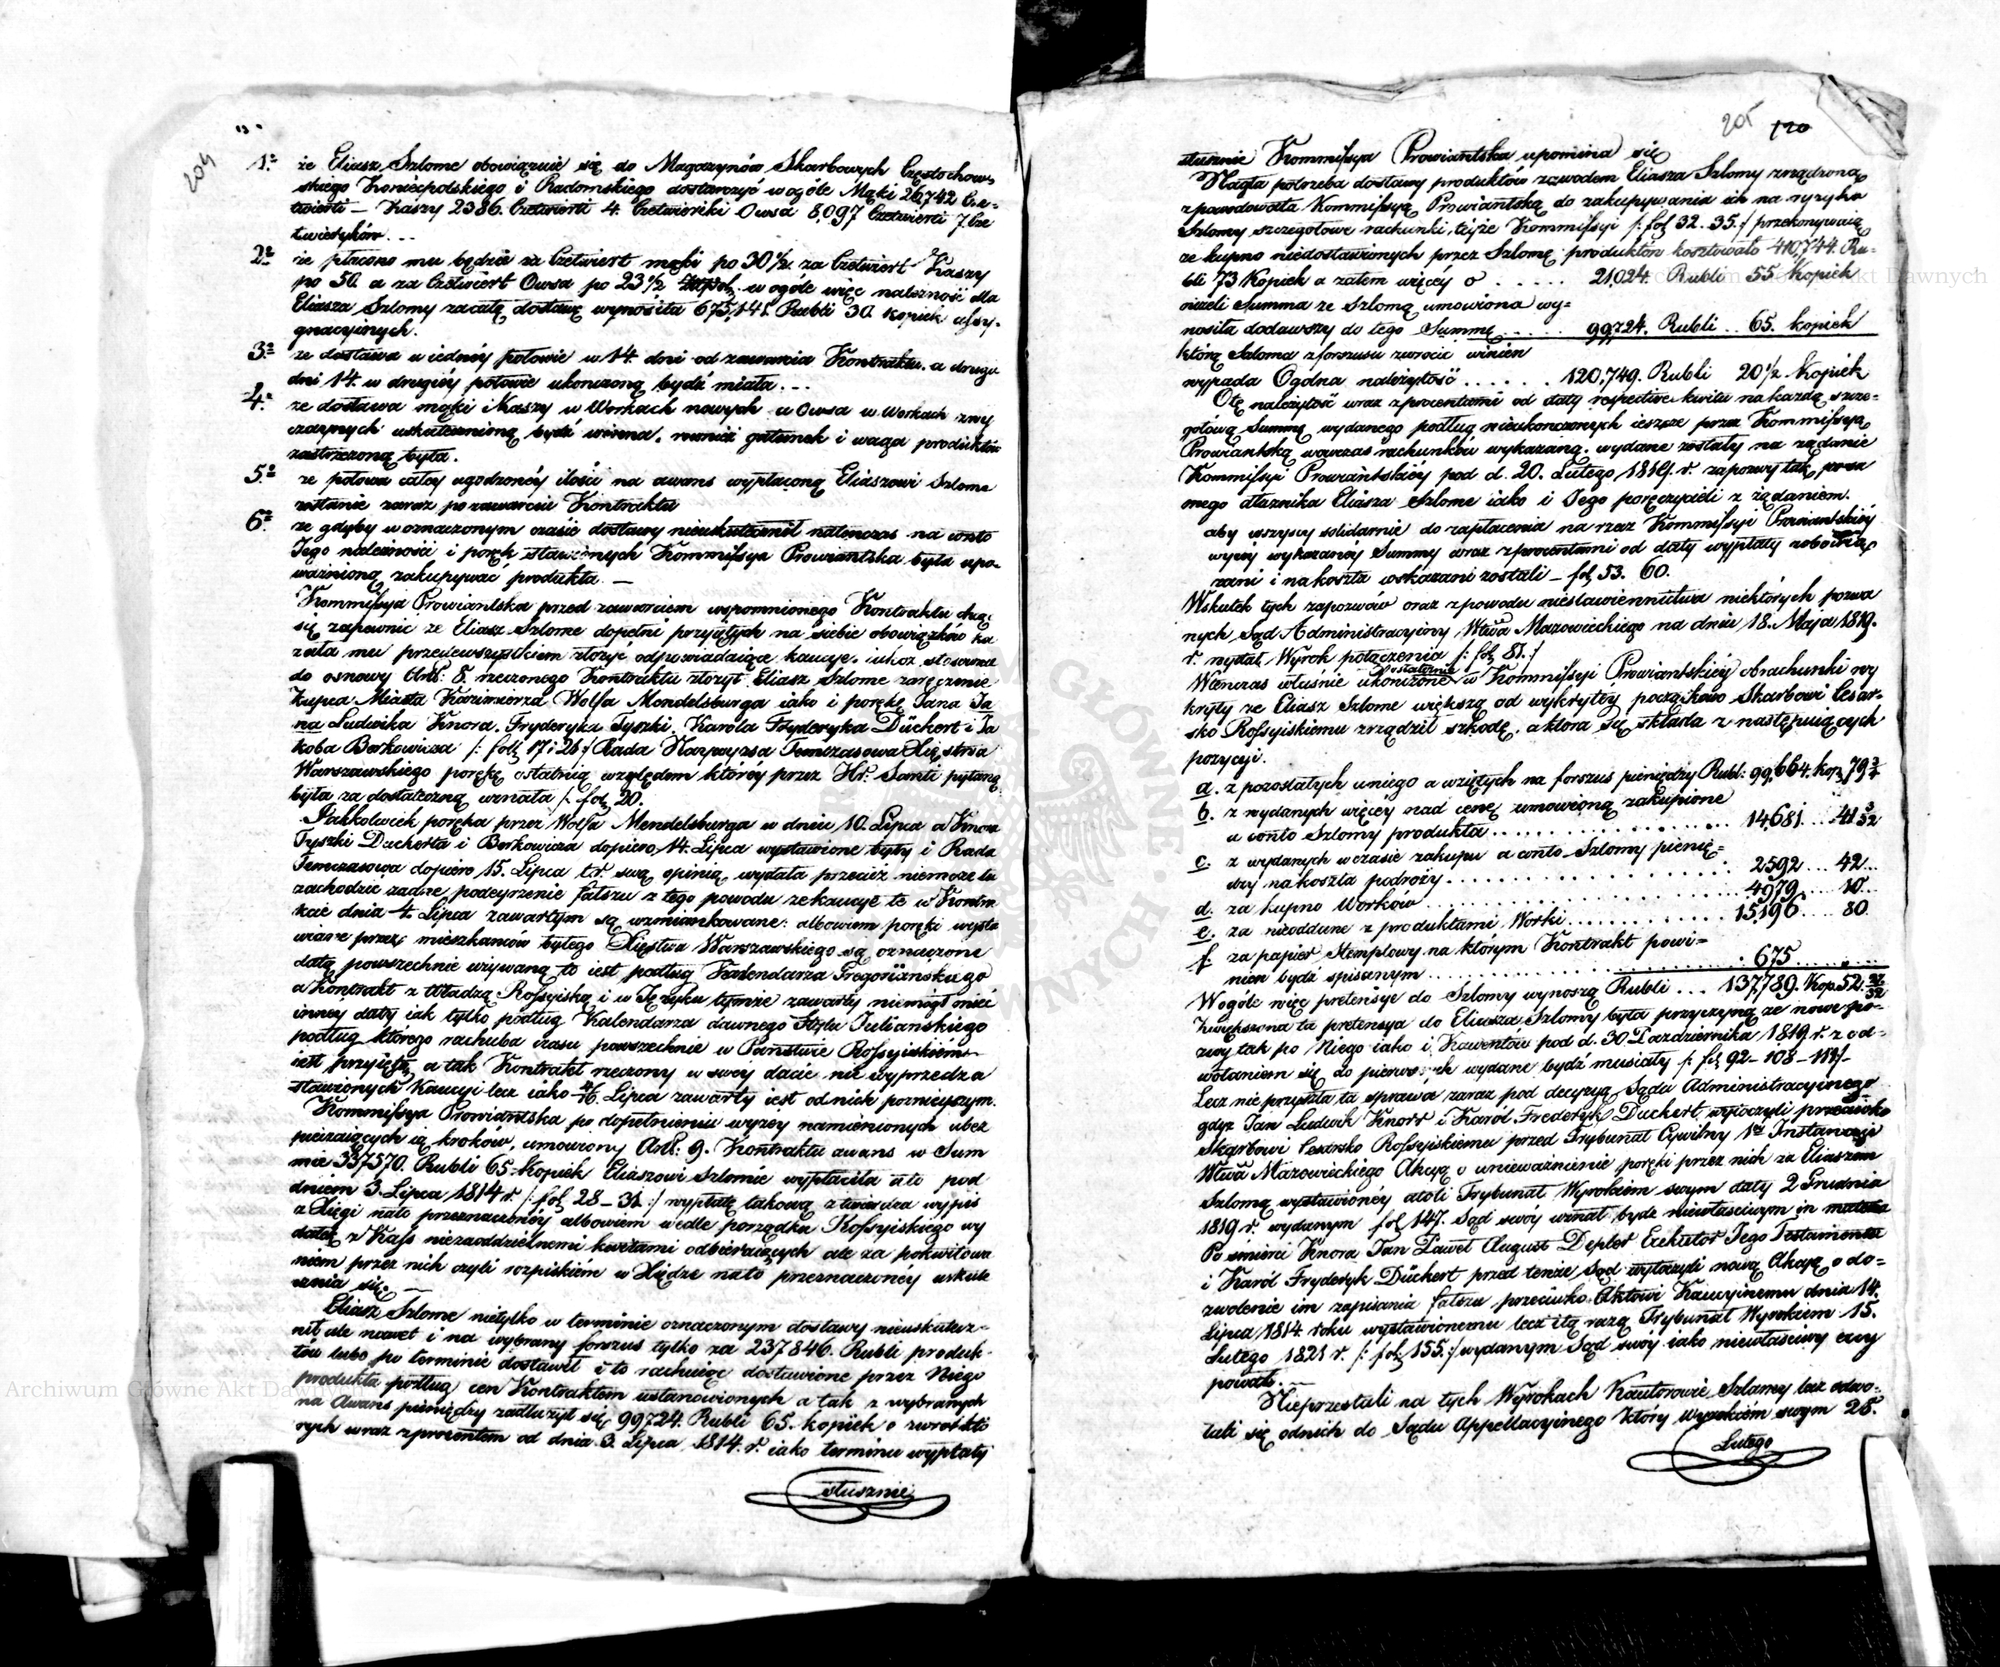 204
1o że Eliasz Szlome obowiązuie się do Magazynów Skarbowych Częstochow-
skiego Koniecpolskiego i Radomskiego dostarczyć w ogóle Mąki 26,742 Cze-
twierti – Kaszy 2386. Czetwierti 4. Czetwieriki Owsa 8,097 Czetwierti 7. Cze
twieryków. –
2o że płacono mu będzie za Czetwiert mąki po 30 1/2. za Czetwiert Kaszy
po 50. a za Czetwiert Owsa po 23 1/2 w ogóle więc należność dla
Eliasza Szlomy za całą dostawę wynosiła 675,141. Rubli 30. kopiek assy-
gnacyinych.
3o że dostawa w iednéy połowie w 14. dni od zawarcia Kontraktu, a drugie
dni 14. w drugiéy połowie ukończoną bydź miała. –
4o że dostawa mąki i Kaszy w Workach nowych a Owsa w Workach zwy
czaynych uskutecznioną bydź winna, równiéż gatunek i waga produktów
zastrzeżoną była.
5o że połowa całey ugodzonéy ilości na awans wypłaconą Eliaszowi Szlome
zostanie zaraz po zawarciu Kontraktu
6o że gdyby w oznaczonym czasie dostawy nieuskutecznił natenczas na conto
Jego należności i poręk stawionych Kommissya Prowiantska była upo-
ważnioną zakupywać produkta. –
Kommissya Prowiantska przed zawarciem wspomnionego Kontraktu chcąc
się zapewnić że Eliasz Szlome dopełni przyjętych na siebie obowiązków ka
zała mu przedewszystkiem złożyć odpowiadaiące kaucye, iakoż stosownie
do osnowy Art: 8. rzeczonego Kontraktu złożył Eliasz Szlome zaręczenie
Kupca Miasta Kazimierza Wolfa Mendelsburga iako i porękę Jana Ja
na Ludwika Knora, Fryderyka Tyszki, Karola Fryderyka Dückert i Ja
koba Berkowicza /: fol. 17 i 26:/ Rada Naywyższa Tymczasowa Xięstwa
Warszawskiego porękę ostatnią względem któréy przez Hr. Santi pytaną
była za dostateczną uznała /: fol. 20.
Jakkolwiek poręka przez Wolfa Mendelsburga w dniu 10. Lipca a Knora
Tyszki Duckerta i Berkowicza dopiero 14. Lipca wystawione były i Rada
Tymczasowa dopiero 15. Lipca t.r. swą opinią wydała przecież niemoże tu
zachodzić żadne podeyrzenie fałszu z tego powodu że kaucye te w Kontra
kcie dnia 4. Lipca zawartym są wzmiankowane: albowiem poręki wysta
wiane przez mieszkańców byłego Xięstwa Warszawskiego są oznaczone
datą powszechnie używaną to iest podług Kalendarza Gregoriańskiego
a Kontrakt z Władzą Rossyiską i w Języku tymże zawarty niemógł mieć
innéy daty iak tylko podług Kalendarza dawnego Stylu Juliańskiego
podług którego rachuba czasu powszechnie w Państwie Rossyiskiém
iest przyjętą, a tak Kontrakt rzeczony w swey dacie nie wyprzedza
stawionych Kaucyi lecz iako 4/16. Lipca zawarty iest od nich poznieyszym.
Kommissya Prowiantska po dopełnieniu wyżéy namienionych ubez
pieczaiących ią kroków, umówiony Art: 9. Kontraktu awans w Sum
mie 337570. Rubli 65. Kopiek Eliaszowi Szlomie wypłaciła a to pod
dniem 3. Lipca 1814 r. /: fol. 28–31:/ wypłatę takową stwierdza wypis
z Xięgi na to przeznaczonéy albowiem wedle porządku Rossyiskiego wy
datek z Kass niezaoddzielnemi kwitami odbieraiących ale za pokwitowa
niem przez nich czyli rozpiskiém w Xiędze na to przeznaczonéy uskute
cznia się.
Eliasz Szlome nietylko w terminie oznaczonym dostawy nieuskutecz-
nił ale nawet i na wybrany forszus tylko za 237846. Rubli produk-
tów lubo po terminie dostawił i to rachuiąc dostawione przez Niego
produkta podług cen Kontraktem ustanowionych a tak z wybranych
na Awans pieniędzy zadłużył się 99724. Rubli 65. kopiek o zwrot któ
rych wraz z procentem od dnia 3. Lipca 1814. r. iako terminu wypłaty
słusznie
205 120
słusznie Kommissya Prowiantska upomina się
Nagła potrzeba dostawy produktów zawodem Eliasza Szlomy zrządzona
spowodowała Kommissyą Prowiantską do zakupywania ich na ryzyko
Szlomy szczegółowe rachunki téjże Kommissyi /: fol. 32. 35:/ przekonywaią
że kupno niedostawionych przez Szlomę produktów kosztowało 410,744 Ru-
bli 73 Kopiek a zatem więcéy o . . . . . 21,024. Rubli 55 Kopiek
niżeli Summa ze Szlomą umówiona wy-
nosiła dodawszy do tego Summę . . . . 99,724. Rubli . . 65. kopiek
którą Szloma z forszusu zwrócić winien
wypada Ogólna należytość . . . . . . 120,749. Rubli 20 1/2 Kopiek
Otę należytość wraz z procentami od daty respective kwitu na każdą szcze-
gółową Summę wydanego podług nieukończonych ieszcze przez Kommissyą
Prowiantską wówczas rachunków wykazaną, wydane zostały na żądanie
Kommissyi Prowiantskiéy pod d. 20. Lutego 1819. r. zapozwy tak prze
mego dłużnika Eliasza Szlome iako i Jego poręczycieli z żądaniem.
aby wszyscy solidarnie do zapłacenia na rzecz Kommissyi Prowiantskiéy
wyżéy wykazanéy Summy wraz z procentami od daty wypłaty zobowią
zani i na koszta wskazani zostali – fol. 53. 60.
Wskutek tych zapozwów oraz z powodu niestawiennictwa niektórych pozwa
nych Sąd Administracyiny Wdztwa Mazowieckiego na dniu 18. Maja 1819.
r. wydał Wyrok połączenia /: fol. 81.:/
Wówczas właśnie ukończone ostatecznie w Kommissyi Prowiantskiéy obrachunki wy
kryły że Eliasz Szlome większą od wykrytéy początkowo Skarbowi Cesar-
sko Rossyiskiemu zrządził szkodę, a która się składa z następuiących
pozycyi.
a. z pozostałych u niego a wziętych na forszus pieniędzy Rubl: 99,664. kop. 79 3/4
b. z wydanych więcey nad cenę umówioną zakupione
a conto Szlomy produkta . . . . . . . . 14,681 . . . 41 3/32
c. z wydanych w czasie zakupu a conto Szlomy pienię-
dzy na koszta podróży . . . . . . . . 2592 . . . 42 . . .
d. za kupno Worków . . . . . . . . 4979 . . . 10 . . .
e. za nieoddane z produktami Worki . . . . . . . 15,196 . . . 80
f. za papier Stemplowy na którym Kontrakt powi-
nien bydź spisanym . . . . . . . . 675 . . . . .
W ogóle więc pretensye do Szlomy wynoszą Rubli . . . 137,789. Kop. 52 27/32
Zwiększona ta pretensya do Eliasza Szlomy była przyczyną że nowe po-
zwy tak po Niego iako i Kawentów pod d. 30 Pazdziernika 1819. r. z od-
wołaniem się do pierwszych wydane bydź musiały /: fol. 92–108–117/–
Lecz nie przyszła ta sprawa zaraz pod decyzyą Sądu Administracyinego
gdyż Jan Ludwik Knorr i Karól Frederyk Duckert wytoczyli przeciwko
Skarbowi Cesarsko Rossyiskiemu przed Trybunał Cywilny 1éy Instancyi
Wdztwa Mazowieckiego Akcyą o unieważnienie poręki przez nich za Eliaszem
Szlomą wystawionéy atoli Trybunał Wyrokiem swym daty 2 Grudnia
1819 r. wydanym fol. 147. Sąd swóy uznał bydź niewłaściwym in materia
Po śmierci Knora Jan Paweł August Depler Exekutor Jego Testamentu
i Karól Fryderyk Dückert przed tenże Sąd wytoczyli nową Akcyą o do-
zwolenie im zapisania fałszu przeciwko Aktowi Kaucyinemu dnia 14.
Lipca 1814. roku wystawionemu lecz i tą razą Trybunał Wyrokiem 15.
Lutego 1821 r. /: fol. 155.:/ wydanym Sąd swóy iako niewłaściwy
pował.
Nieprzestali na tych Wyrokach Kautorowie Szlomy lecz odwo-
łali się od nich do Sądu Appellacyinego który Wyrokiém swym 28.
Lutego
Archiwum Główne Akt Dawnych